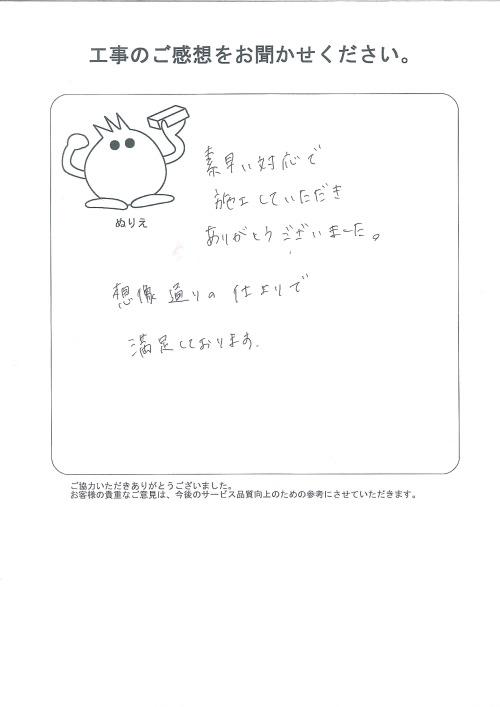 工事のご感想をお聞かせください。
素早い対応で
施工していただき
ありがとうございました。
ぬりえ
想像通りの仕上りで
満足しております。
ご協力いただきありがとうございました。
お客様の貴重なご意見は、今後のサービス品質向上のための参考にさせていただきます。